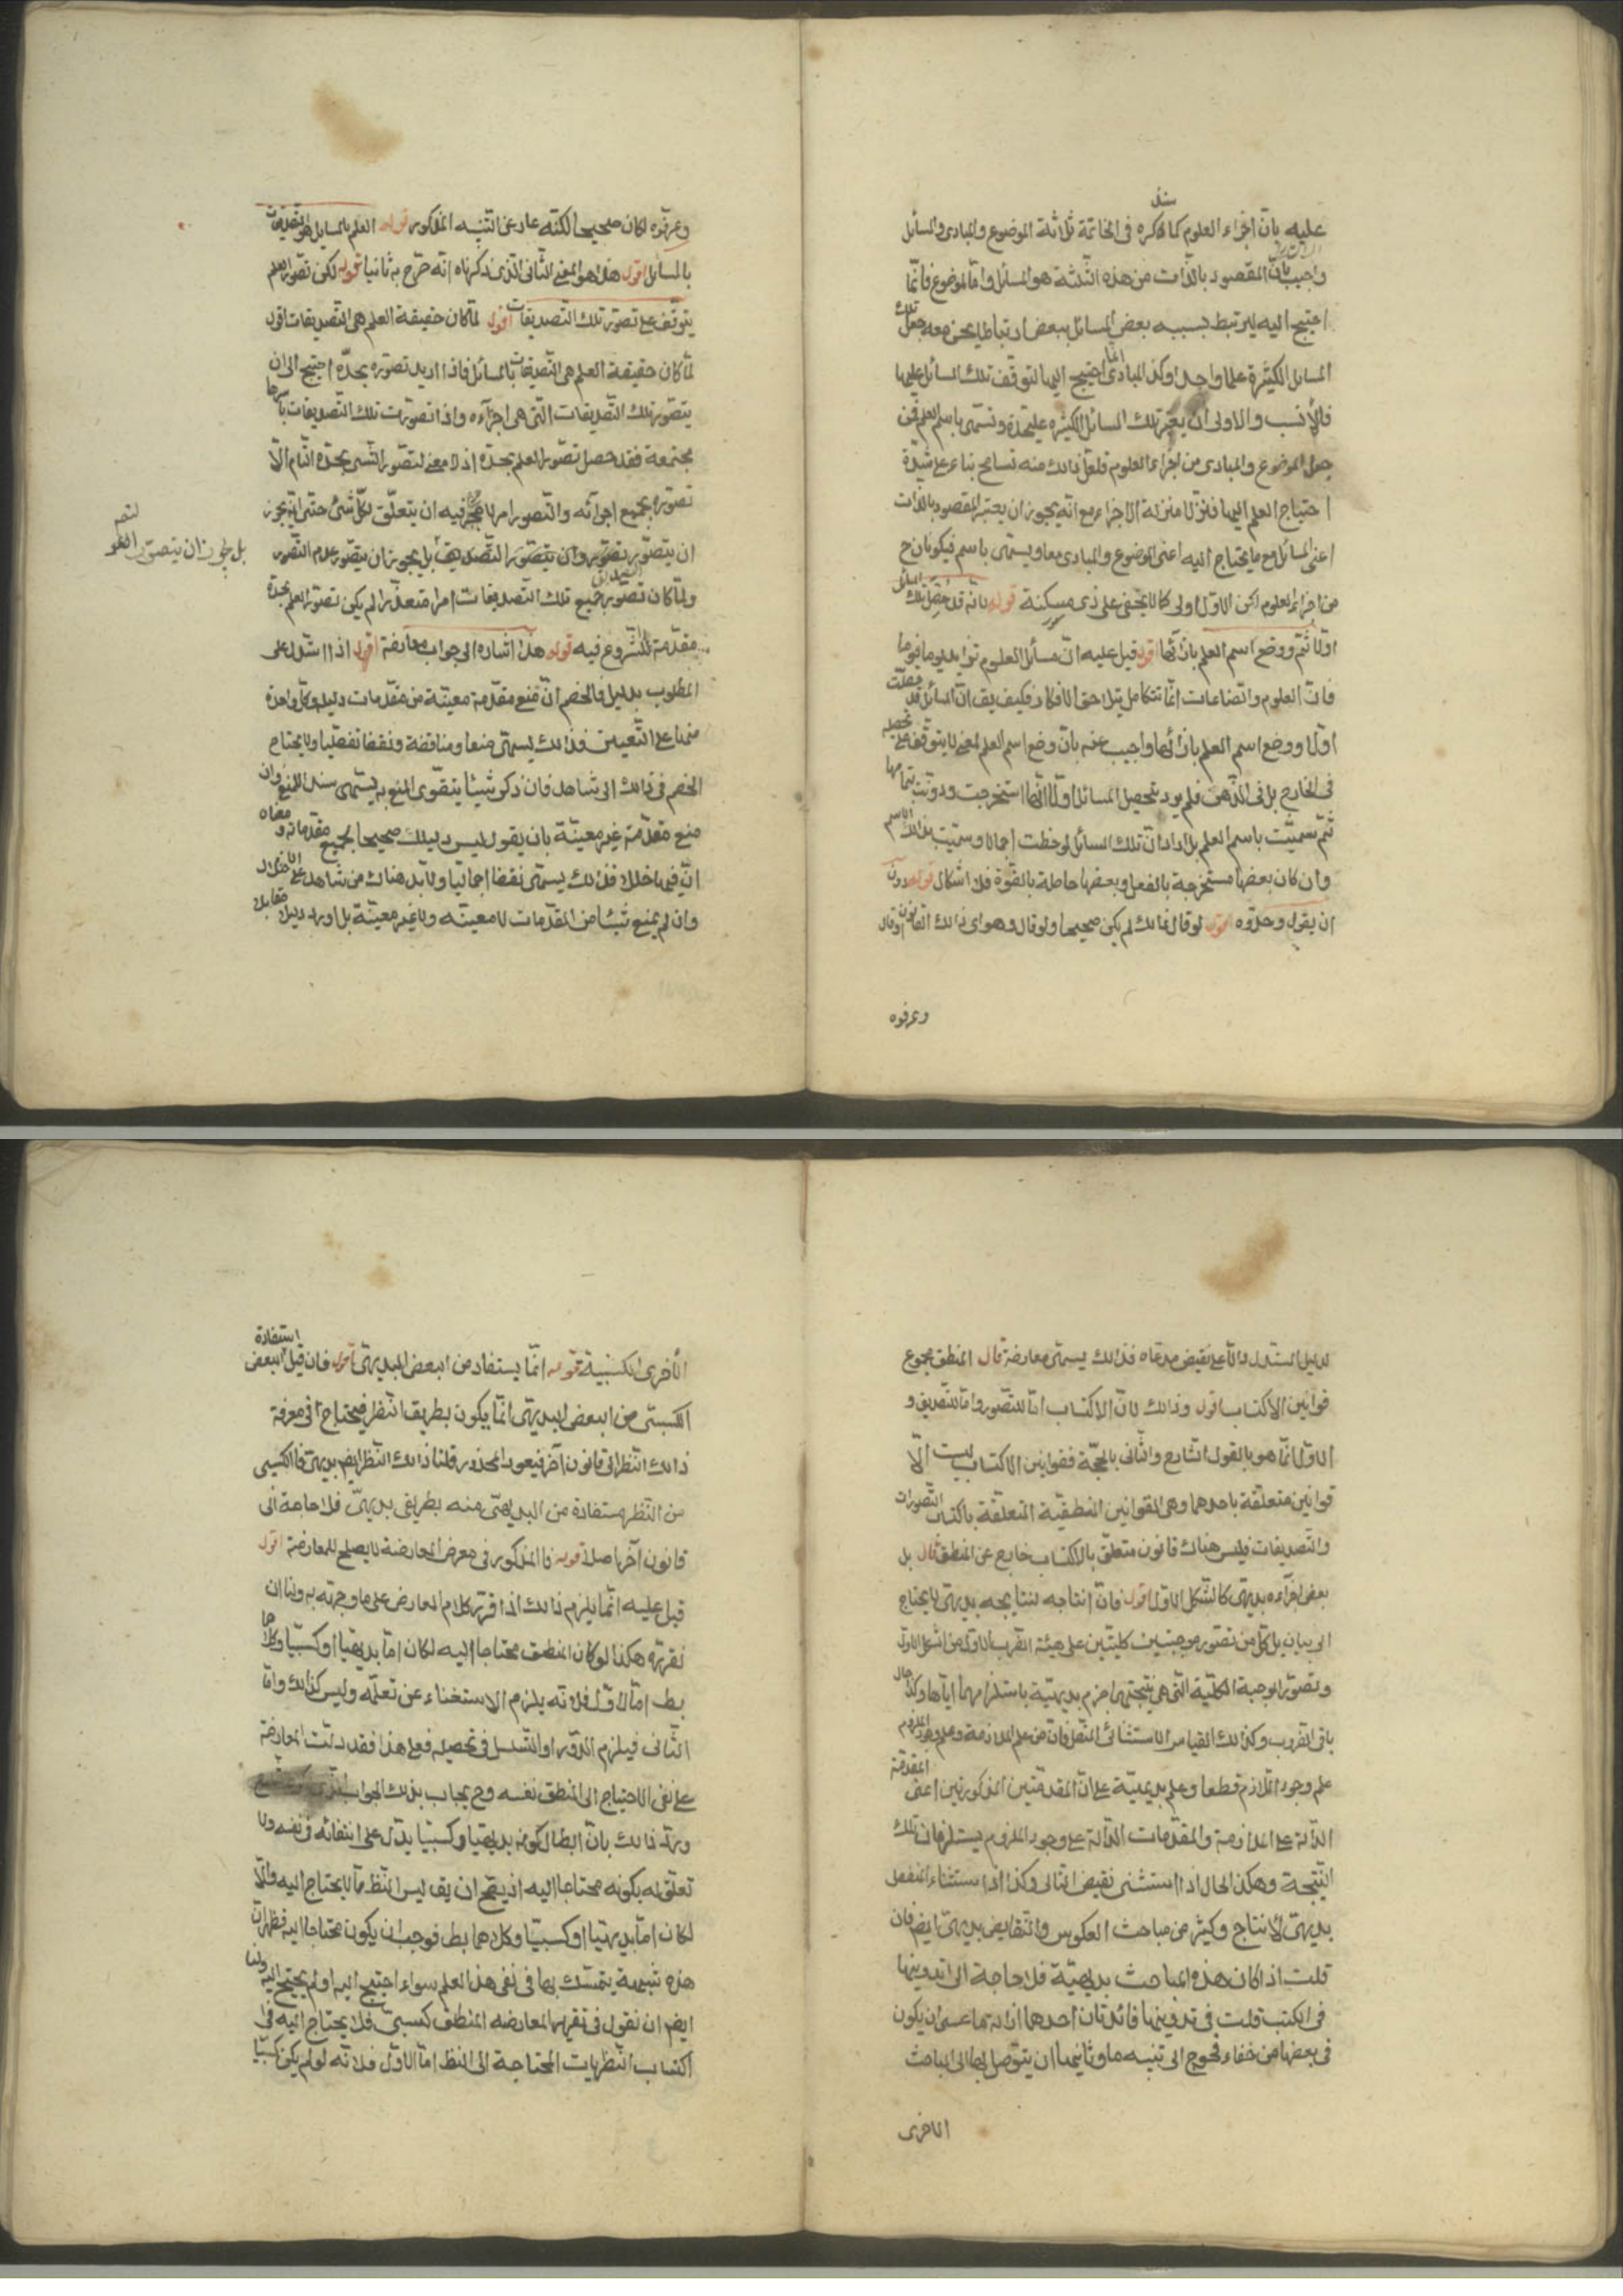 سئل
عليه بان اجزاء العلوم كما ذكره فى الخاتمة ثلاثة الموضوع والمبادى والمسائل
واجيب بان المقصود بالذات من هذه الثلثة هو المسائل واما الموضوع فانما
احتيج اليه ليرتبط بسببه بعض المسائل ببعض ارتباطا يحسن معه جعل تلك
المسائل الكثيرة علما واحدا وكذا المبادى انما احتيج اليها لتوقف تلك المسائل عليها
فالأنسب والاولى ان يعتبر تلك المسائل الكثيره عليحدة وتسمى باسم العلم فمن
جعل الموضوع والمبادى من اجزاء العلوم فلعل ذلك منه تسامح بناء على شدة
احتياج العلم اليها فنزلا منزلة الاجزاء مع انه يجوز ان يعتبر المقصود بالذات
اعنى المسائل مع ما يحتاج اليه اعنى الموضوع والمبادى معا ويسمى باسم فيكونان ح
من اجزاء العلوم لكن الاول اولى كما لا يخفى على ذى مسكنة قوله بانه قد حصل تلك المسائل
اولا ثم ووضع اسم العلم بازائها اقول قيل عليه ان مسائل العلوم تزايد يوما فيوما
فان العلوم والصناعات انما تتكامل بتلاحق الافكار فكيف يق ان المسائل قد حصلت
اولا ووضع اسم العلم بازائها واجيب عنه بان وضع اسم العلم لمعنى لا يتوقف على تحصله
فى الخارج بل فى الذهن فلم يرد بتحصيل المسائل اولا انها استخرجت ودونت بتمامها
ثم سميت باسم العلم بل اراد ان تلك المسائل لوحظت اجمالا وسميت بذلك الاسم
وان كان بعضها مستخرجة بالفعل وبعضها حاصلة بالقوة فلا اشكال قوله دون
ان يقول وحدوه اقول لو قال ذلك لم يكن صحيحا ولو قال وهو اى ذلك القانون او قال
وعرفوه
وعرفوه لكان صحيحا لكنه عار عن التنبيه المذكور قوله العلم بالمسايل هو التصديقات
بالمسائل اقول هذا هو المعنى الثانى الذى ذكرناه انه صرح به ثانيا قوله لكن تصور العلم
يتوقف على تصور تلك التصديقات اقول لما كان حقيقة العلم هى التصديقات اقول
لما كان حقيقة العلم هى التصديقات بالمسائل فاذا اريد تصوره بحده احتيج الى ان
يتصور تلك التصديقات التى هى اجزآءه واذا تصورت تلك التصديقات باسرها
مجتمعة فقد حصل تصور العلم بحده اذ لا معنى لتصور الشىء بحده التام الا
تصوره بجميع اجزآئه والتصور امر لا حجر فيه ان يتعلق بكل شئ حتى انه يجوز
ان يتصور تصوره وان يتصور التصديق بل يجوز ان يتصور عدم التصور
بل يجوز ان يتصور
ولما كان تصور جميع تلك التصديقات امرا متعذرا لم يكن تصور العلم بحده
مقدمة للشروع فيه قوله هذا اشاره الى جواب معارضة اقول اذا استدل على
المطلوب بدليل فالخصم ان منع مقدمة معينة من مقدمات دليله وكل واحدة
منها على التعيين فذلك يسمى منعا ومناقضة ونقضا تفصليا ولا يحتاج
الخصم فى ذلك الى شاهد فان ذكر شيئا يتقوى المنع به يسمى سند المنع وان
منع مقدمة غير معينة بان يقول ليس دليلك صحيحا بجميع مقدماته ومعناه
ان فيها خللا فذلك يسمى نقضا اجماليا ولا بد هناك من شاهد على الاختلال
وان لم يمنع شيئا من المقدمات لا معينه ولا غير معينة بل اورد دليلا مقابلا
لدليل المستدل دالا على نقيض مدعاه فذلك يسمى معارضة قال المنطق مجموع
قوانين الاكتساب اقول وذلك لان الاكتساب اما للتصور واما للتصديق و
الاول انما هو بالقول الشارح والثانى بالحجة فقوانين الاكتساب ليست الا
قوانين متعلقة باحدهما وهى القوانين المنطقية المتعلقة باكتساب التصورات
والتصديقات فليس هناك قانون متعلق بالاكتساب خارج عن المنطق قال بل
بعض اجزآءه بديهى كالشكل الاول اقول فان انتاجه لنتايجه بديهى لا يحتاج
الى بيان بل كل من تصور موجبتين كليتين على هيئة الضرب الاول من الشكل الاول
وتصور الموجبة الكلية التى هى نتيجتهما جزم بديهية باستلزامهما اياها وكذا حال
باقى الضروب وكذلك القياس الاستثنائى المتصل فان من علم الملازمة وعلم وجود الملزوم
علم وجود اللازم قطعا وعلم بديهية على ان المقدمتين المذكورتين اعنى المقدمة
الدالة على الملازمة والمقدمات الدالة على وجود الملزوم يستلزمان تلك
النتيجة وهكذا الحال اذا استثنى نقيض التالى وكذا اذا استثناء المنفصل
بديهى الانتاج وكثير من مباحث العكوس والتناقض بديهى ايضا فان
قلت اذا كان هذه المباحث بديهية فلا حاجة الى تدوينها
فى الكتب قلت فى تدوينها فائدتان احدهما ازالة ما عسى ان يكون
فى بعضها من خفاء محوج الى تنبيه ما وثانيهما ان يتوصل بها الى المباحث
الاخرى
الأخرى الكسبية قوله انما يستفاد من البعض البديهى اقول فان قيل استفادة البعض
الكسبى من البعض البديهى انما يكون بطريق النظر فيحتاج فى معرفة
ذلك النظر الى قانون آخر فيعود المحذور قلنا ذلك النظر ايض بديهى فالكسبى
من النظر مستفادة من البديهى منه بطريق بديهى فلا حاجة الى
قانون آخر اصلا قوله فالمذكور فى معرض المعارضة لا يصلح للمعارضة اقول
قيل عليه انما يلزم ذلك اذا قرر كلام المعارض على ما وجهته به ولنا ان
نقرره هكذا لو كان المنطق محتاجا اليه لكان اما بديهيا او كسبيا وكلاهما
بط اما الاول فلانه يلزم الاستغناء عن تعلمه وليس كذلك واما
الثانى فيلزم الدور او التسلسل فى تحصيله فعلى هذا فقد دلت المعارضة
على نفى الاحتياج الى المنطق نفسه وح يجاب بذلك الجواب
ورد ذلك بان ابطال كونه بديهيا وكسبيا يدل على انتفائه فى نفسه ولا
تعلق له بكونه محتاجا اليه اذ يصح ان يق ليس المنطق مما لا يحتاج اليه والا
لكان اما بديهيا او كسبيا وكلاهما بط فوجب ان يكون محتاجا اليه فظهر ان
هذه شبهة يتمسك بها فى نفى هذا العلم سواء احتيج اليه او لم يحتج اليه ولنا
ايضا ان نقول فى تقرير المعارضه المنطق كسبى فلا يحتاج اليه فى
اكتساب النظريات المحتاجة الى النظر اما الاول فلانه لو لم يكن كسبيا